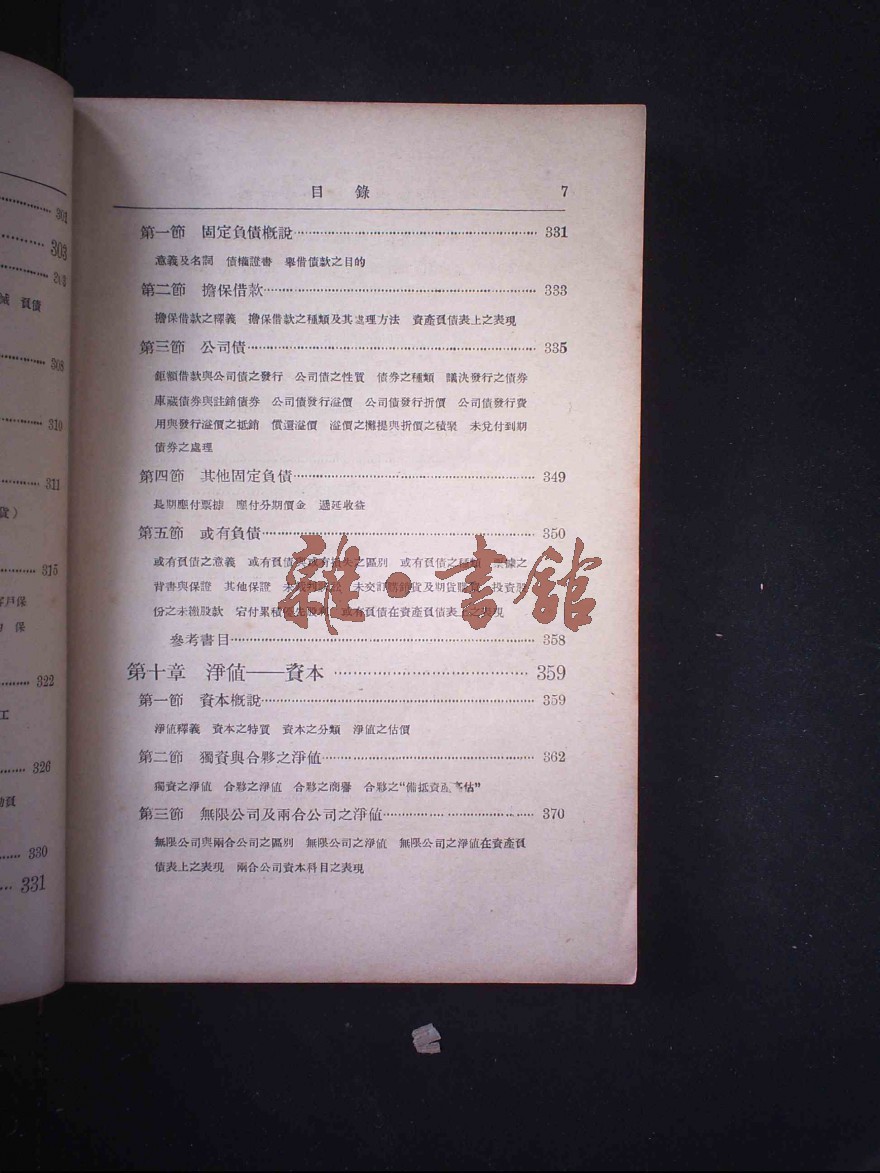 301
303
303
減 負債
308
310
311
貨）
315
客戶保
保
322
工
326
動負
330
331
目 錄 7
第一節 固定負債概說 331
意義及名詞 債權證書 舉借債款之目的
第二節 擔保借款 333
擔保借款之釋義 擔保借款之種類及其處理方法 資產負債表上之表現
第三節 公司債 335
鉅額借款與公司債之發行 公司債之性質 債券之種類 議決發行之債券
庫藏債券與註銷債券 公司債發行溢價 公司債發行折價 公司債發行費
用與發行溢價之抵銷 償還溢價 溢價之攤提與折價之積聚 未兌付到期
債券之處理
第四節 其他固定負債 349
長期應付票據 應付分期價金 遞延收益
第五節 或有負債 350
或有負債之意義 或有負債與或有損失之區別 或有負債之種類 票據之
背書與保證 其他保證 未交 銷貨及期貨購買 投資股
份之未繳股款 宕付累積優先股利 或有負債在資產負債表上之表現
參考書目 358
第十章 淨値——資本 359
第一節 資本概說 359
淨値釋義 資本之特質 資本之分類 淨値之估價
第二節 獨資與合夥之淨値 362
獨資之淨値 合夥之淨値 合夥之商譽 合夥之“備抵資產高估”
第三節 無限公司及兩合公司之淨値 370
無限公司與兩合公司之區別 無限公司之淨値 無限公司之淨値在資產負
債表上之表現 兩合公司資本科目之表現
雜·書館